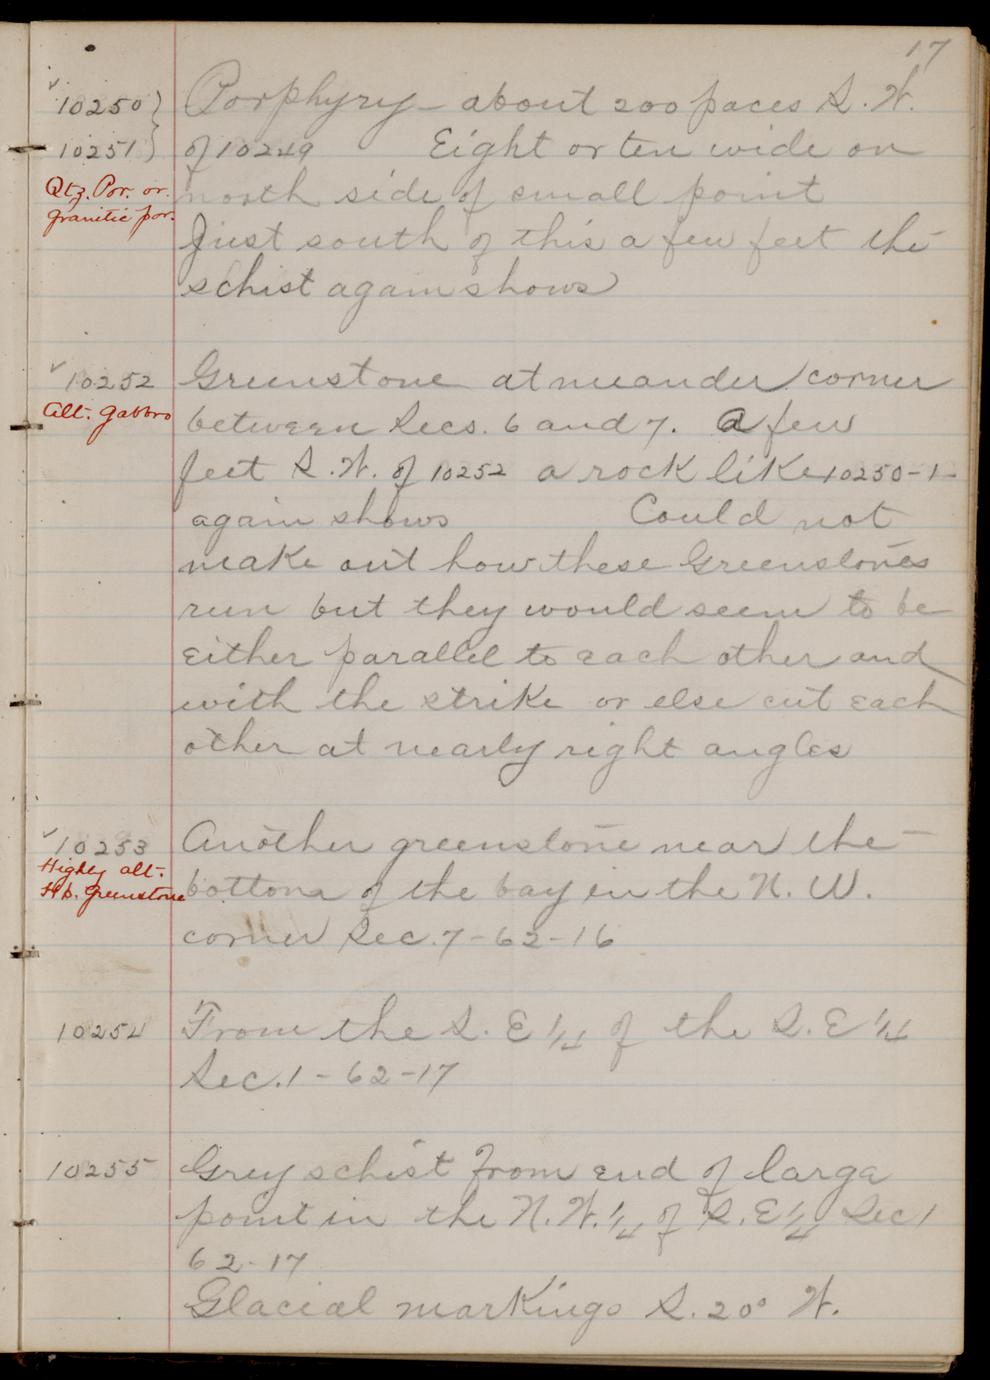 17
✓10250 } Porphyry - about 200 paces S. W.
10251 } of 10249 Eight or ten wide on
Qtz. Por. or north side of small point
granitic por.
Just south of this a few feet the
schist again shows
✓10252 Greenstone at meander corner
Alt. gabbro between Secs. 6 and 7. A few
feet S. W. of 10252 a rock like 10250-1-
again shows Could not
make out how these Greenstones
run but they would seem to be
either parallel to each other and
with the strike or else cut each
other at nearly right angles
✓10253 Another greenstone near the
Highly alt. bottom of the bay in the N. W.
Hb. greenstone
corner Sec. 7-62-16
10254 From the S. E 1/4 of the S. E 1/4
Sec. 1 - 62-17
10255 Grey schist from end of large
point in the N. W. 1/4 of S. E 1/4 Sec 1
62-17
Glacial markings S. 20° W.